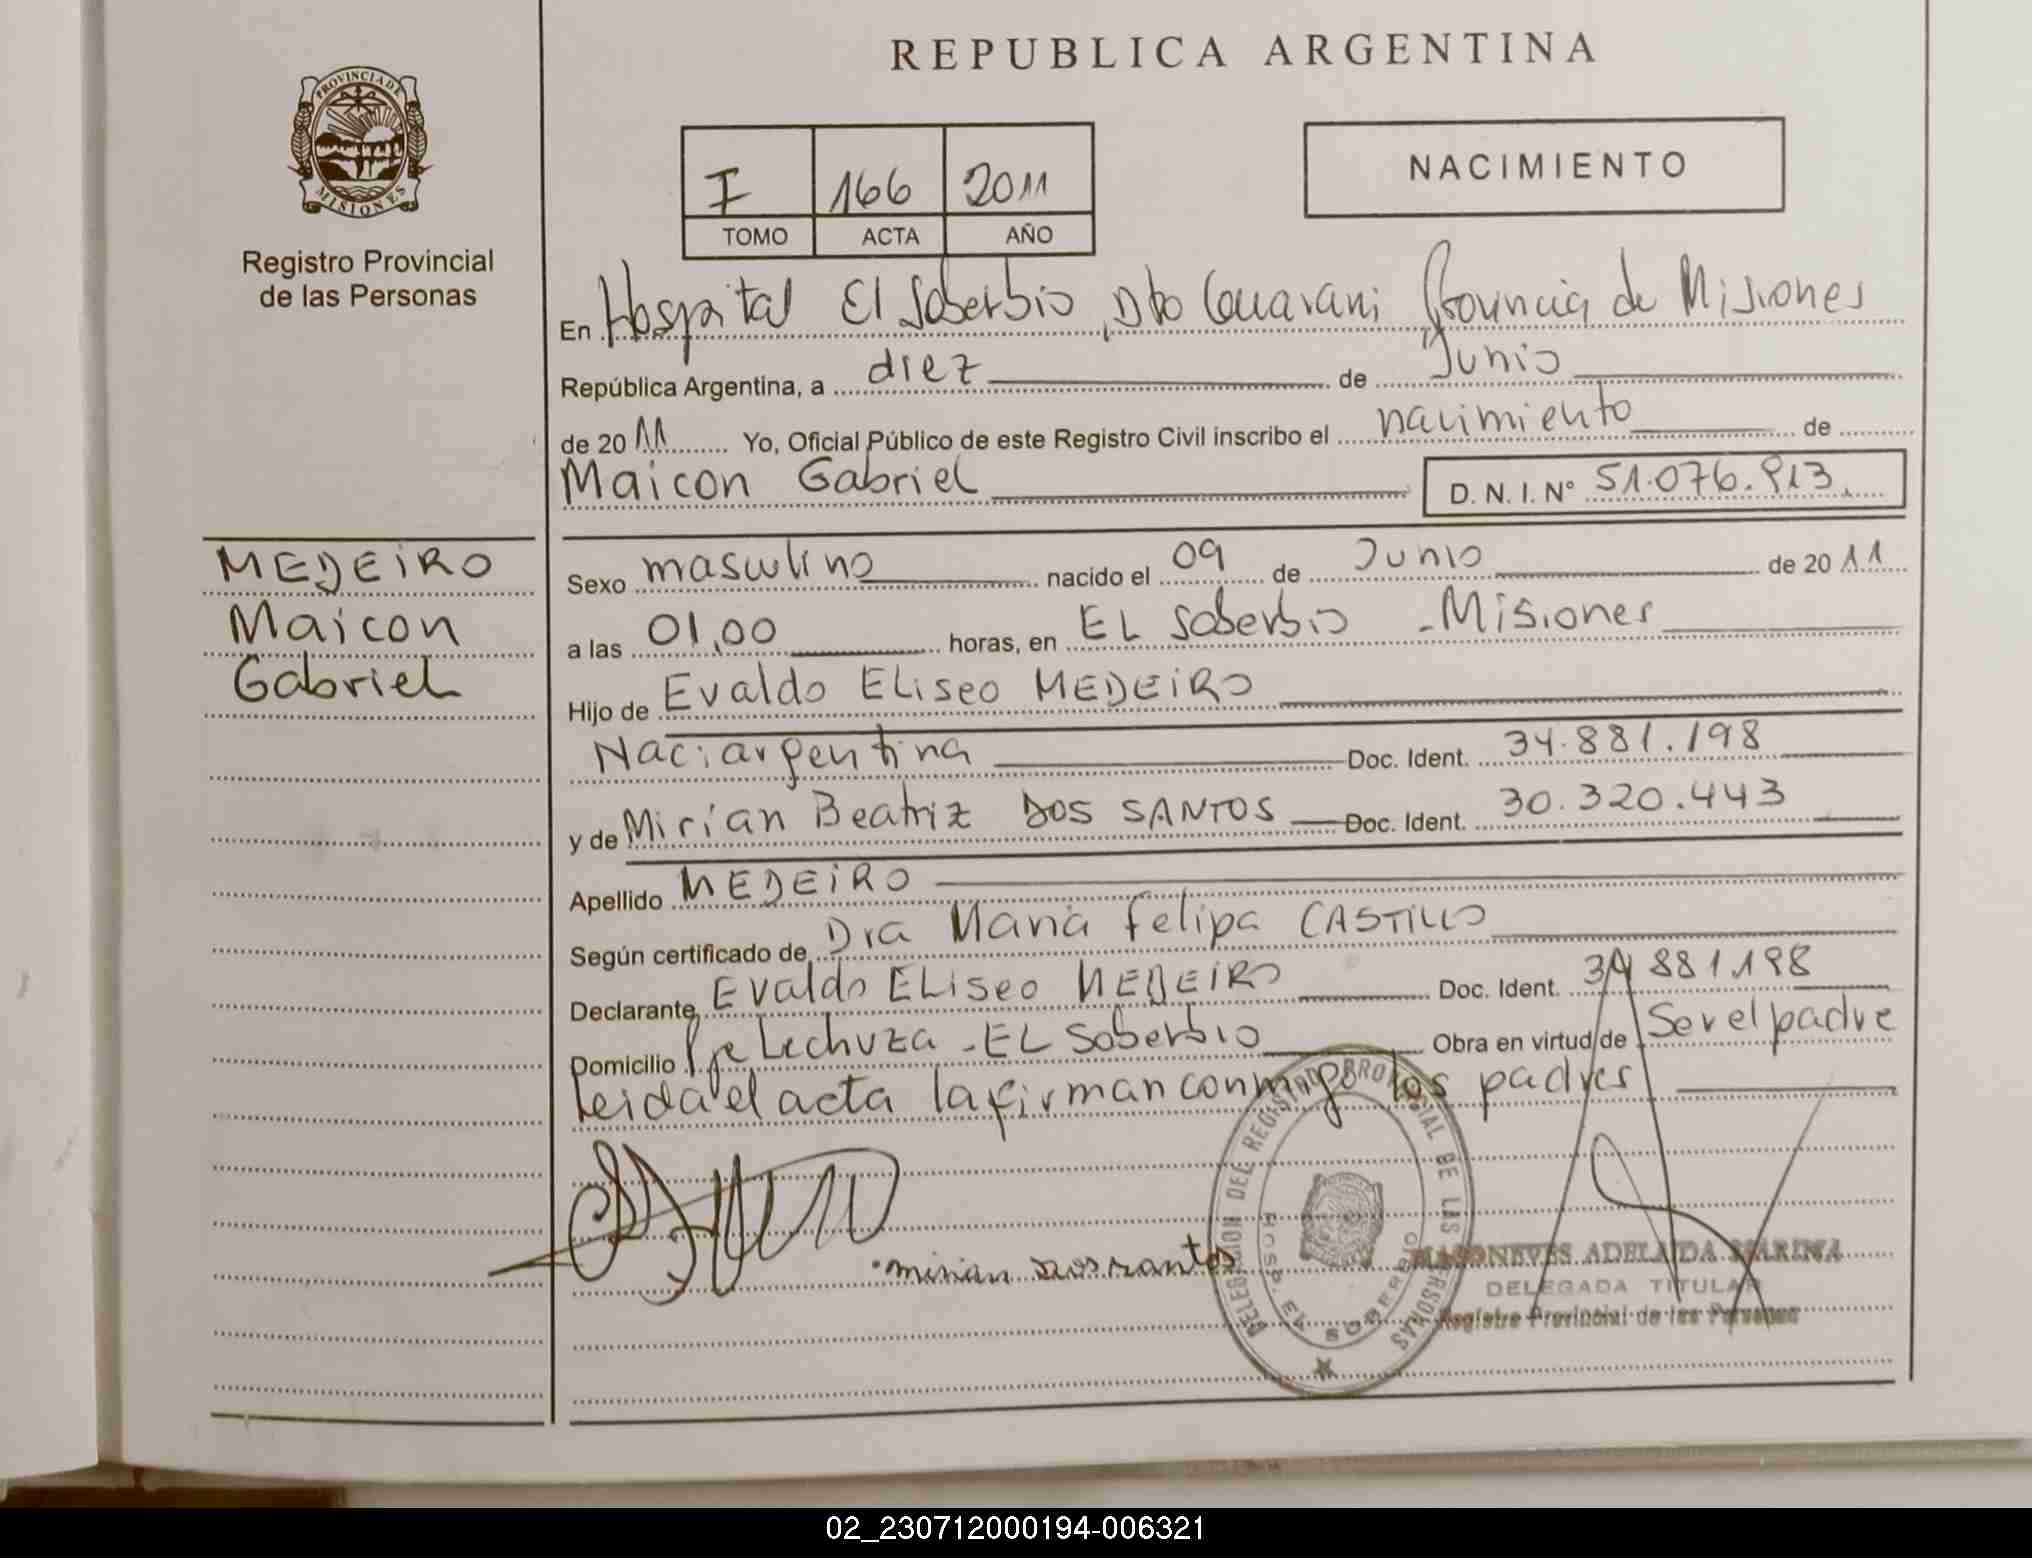 REPUBLICA ARGENTINA
PROVINCIA DE MISIONES
Registro Provincial
de las Personas
I 166 2011
TOMO ACTA AÑO
NACIMIENTO
En Hospital El Soberbio, Dto Guarani Provincia de Misiones
República Argentina, a diez de Junio
de 2011 Yo, Oficial Público de este Registro Civil inscribo el nacimiento de
Maicon Gabriel D. N. I. N° 51.076.913
MEDEIRO
Maicon
Gabriel
Sexo masculino nacido el 09 de Junio de 2011
a las 01,00 horas, en EL Soberbio - Misiones
Hijo de Evaldo ELiseo MEDEIRO
Naci: argentina Doc. Ident. 34.881.198
y de Mirian Beatriz DOS SANTOS Doc. Ident. 30.320.443
Apellido MEDEIRO
Según certificado de Dra Maria Felipa CASTILLO
Declarante Evaldo ELiseo MEDEIRO Doc. Ident. 34 881 198
Domicilio Pje Lechuza - EL Soberbio Obra en virtud de Ser el padre
Leida el acta la firman conmigo los padres
mirian dos santos
DELEGACION DEL REGISTRO PROVINCIAL DE LAS PERSONAS
HOSP. EL SOBERBIO
ADELAIDA MARINA
DELEGADA TITULAR
Registro Provincial de las Personas
02_230712000194-006321